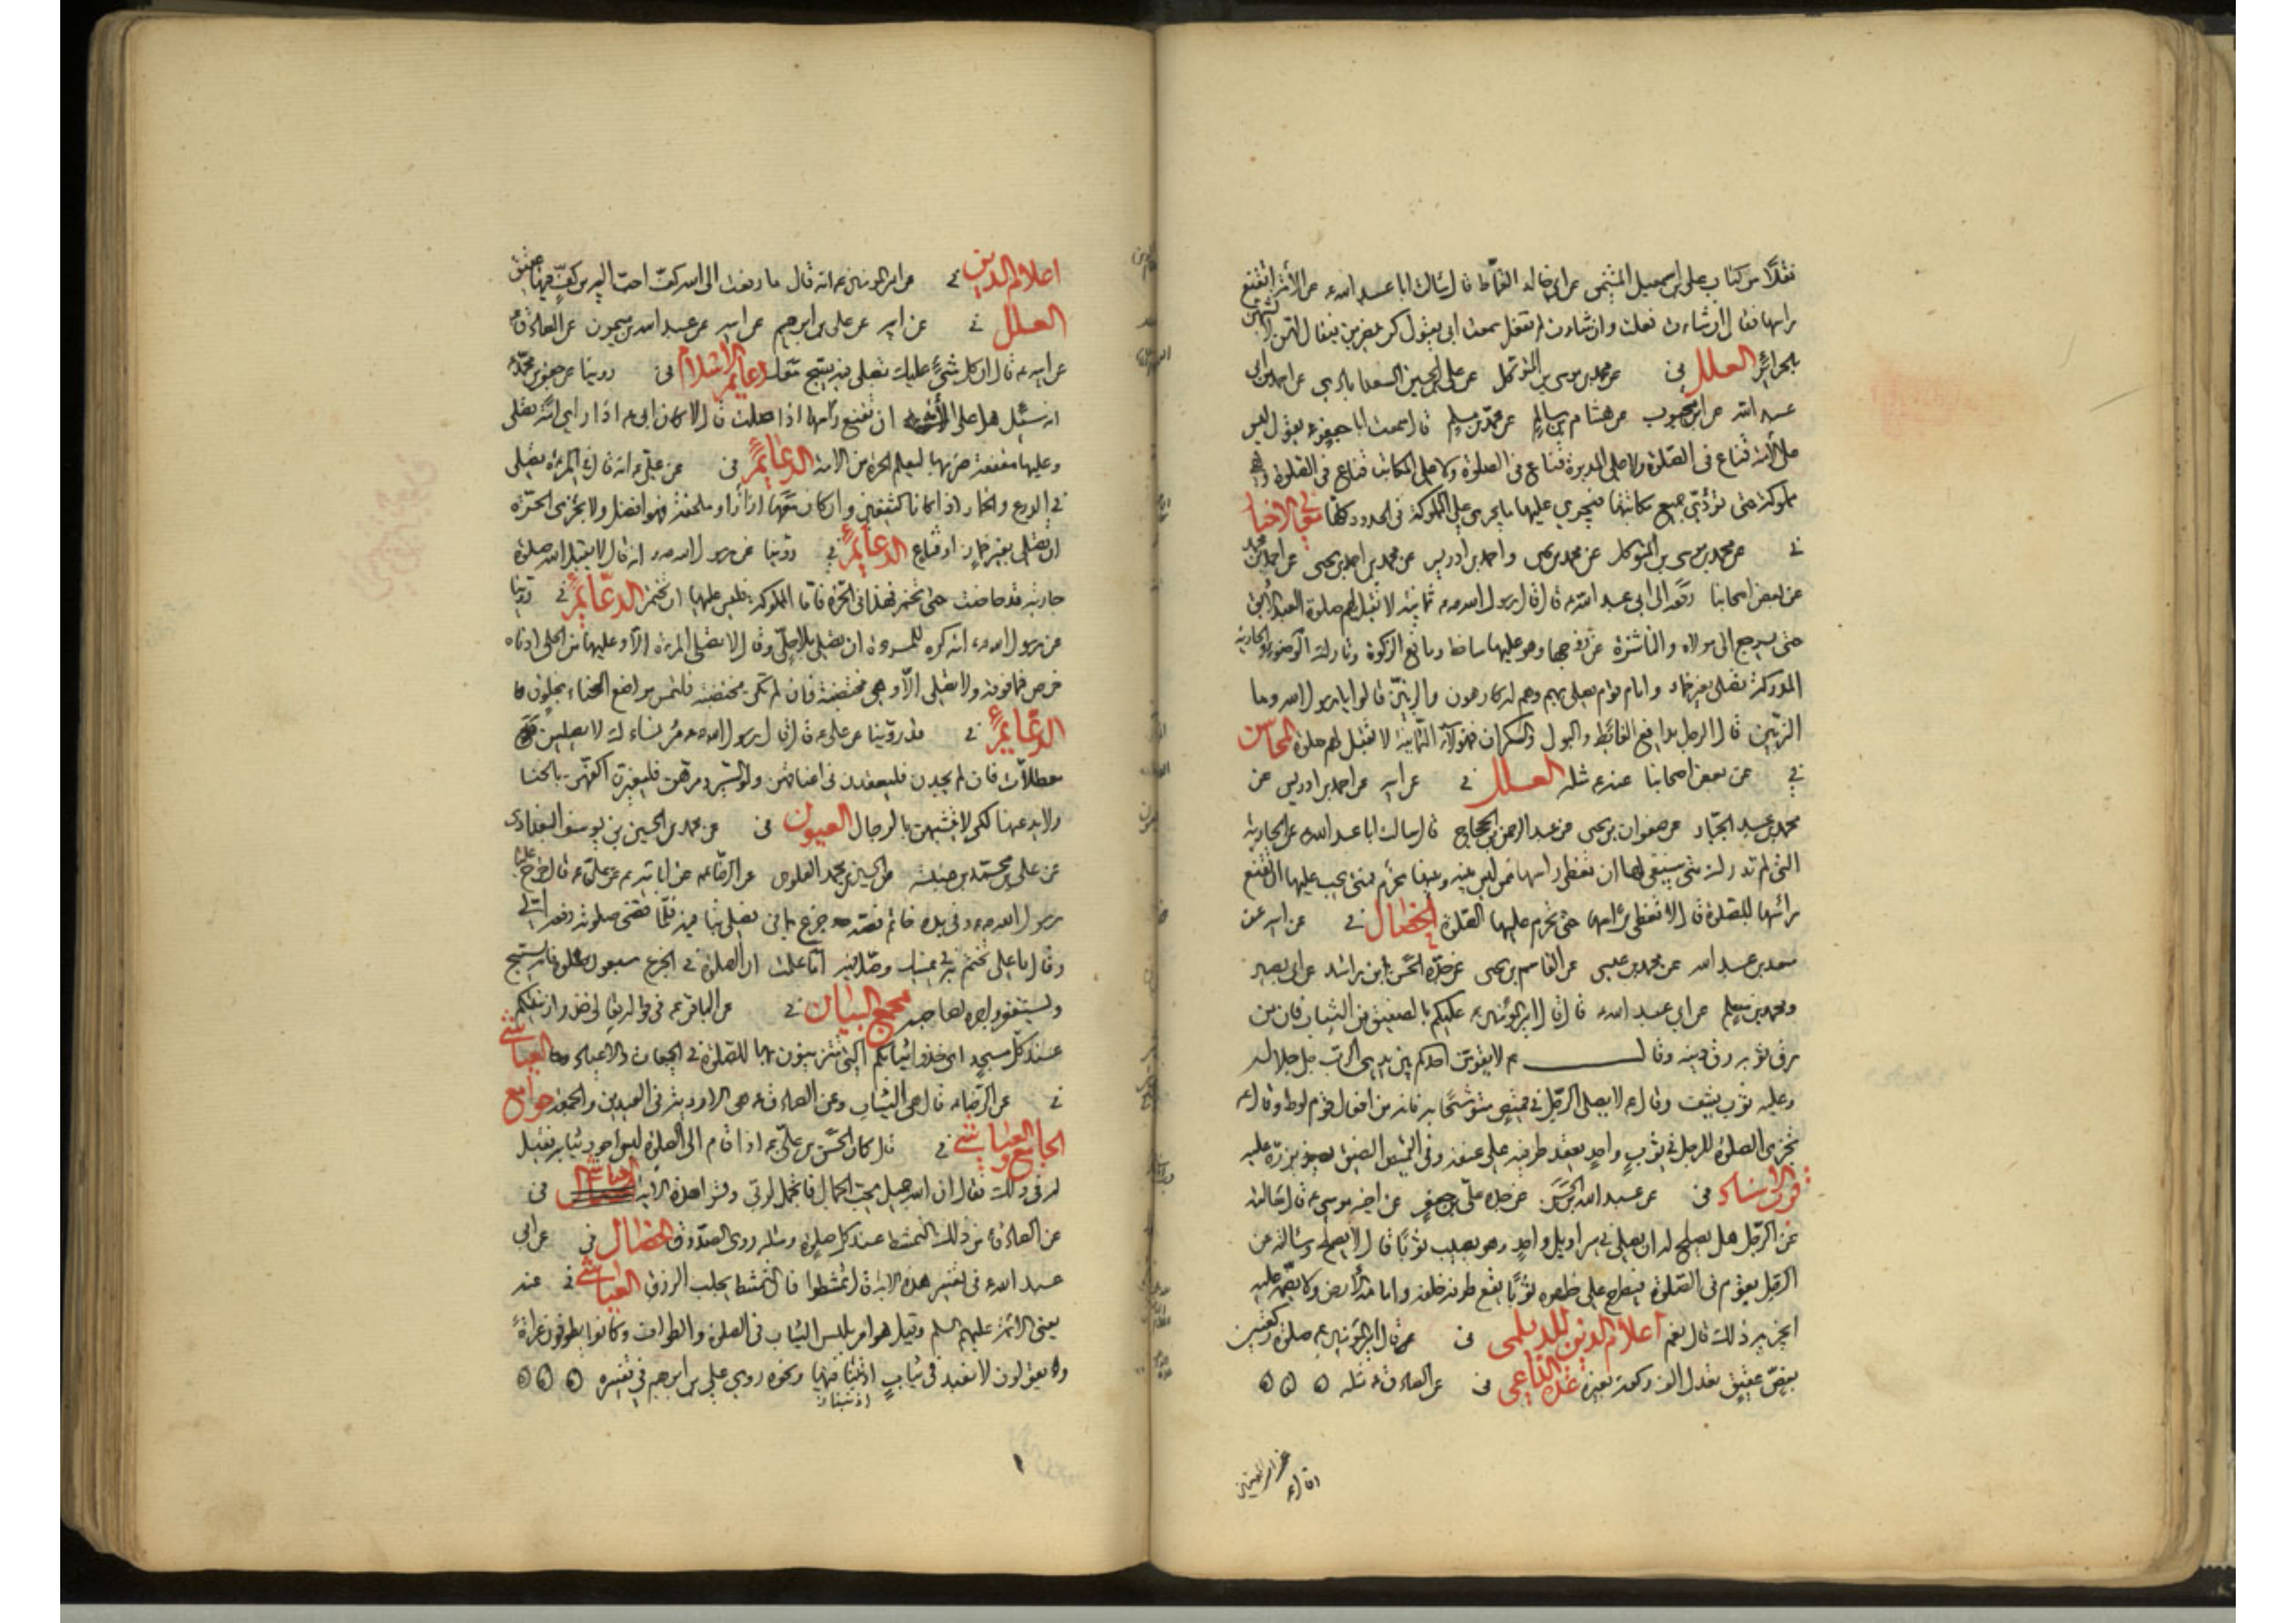 نقلا من كتاب علي بن اسمعيل الميثمي عن ابي خالد القماط قال سالت ابا عبد الله ع عن الأمة اتقنع
راسها فقال ان شاءت فعلت وان شاءت لم تفعل سمعت ابي يقول كن يضربن فيقال لهن لا تشبهن
بالحرائر العلل في عن محمد بن موسى بن المتوكل عن علي بن الحسين السعدابادي عن احمد بن ابي
عبد الله عن ابن محبوب عن هشام بن سالم عن محمد بن مسلم قال سمعت ابا جعفر ع يقول ليس
على الأمة قناع في الصلوة ولا على المدبرة قناع في الصلوة ولا على المكاتبة قناع في الصلوة وهي
مملوكة حتى تؤدي جميع مكاتبتها ويجري عليها ما يجري على المملوكة في الحدود كلها معاني الاخبار
في عن محمد بن موسى بن المتوكل عن محمد بن يحيى واحمد بن ادريس عن محمد بن احمد بن يحيى عن احمد بن محمد
عن بعض اصحابنا رفعه الى ابي عبد الله ع قال قال رسول الله ص ثمانية لا تقبل لهم صلوة العبد الآبق
حتى يرجع الى مولاه والناشزة عن زوجها وهو عليها ساخط ومانع الزكوة وتارك الوضوء والجارية
المدركة تصلي بغير خمار وامام قوم يصلي بهم وهم له كارهون والزبين قالوا يا رسول الله وما
الزبين قال الرجل يدافع الغائط والبول والسكران فهؤلاء الثمانية لا تقبل لهم صلوة المحاسن
في عن بعض اصحابنا عنه ع مثله العلل في عن ابيه عن احمد بن ادريس عن
محمد بن عبد الجبار عن صفوان بن يحيى عن عبد الرحمن بن الحجاج قال سالت ابا عبد الله ع عن الجارية
التي لم تدرك متى ينبغي لها ان تغطي راسها ممن ليس بينه وبينها محرم ومتى يجب عليها ان تقنع
راسها للصلوة قال لا تغطي راسها حتى تحرم عليها الصلوة الخصال في عن ابيه عن
سعد بن عبد الله عن محمد بن عيسى عن القاسم بن يحيى عن جده الحسن بن راشد عن ابي بصير
ومحمد بن مسلم عن ابي عبد الله ع قال قال امير المؤمنين ع عليكم بالصفيق من الثياب فان من
رق ثوبه رق دينه وقال ع لا يقومن احدكم بين يدي الرب جل جلاله
وعليه ثوب يشف وقال ع لا يصلي الرجل في قميص متوشحا به فانه من افعال قوم لوط وقال ع
تجزي الصلوة للرجل في ثوب واحد يعقد طرفيه على عنقه وفي القميص الصفيق يزره عليه
قرب الاسناد في عن عبد الله بن الحسن عن جده علي بن جعفر عن اخيه موسى ع قال سالته
عن الرجل هل يصلح له ان يصلي في سراويل واحد وهو يصيب ثوبا قال لا يصلح وسالته عن
الرجل يقوم في الصلوة فيطرح على ظهره ثوبا يقع طرفه خلفه وامامه الأرض ولا يضمه عليه
ايجزيه ذلك قال نعم اعلام الدين للديلمي في قال امير المؤمنين ع صلوة ركعتين
بفص عقيق تعدل الف ركعة بغيره عدة الداعي في عن الصادق ع مثله
اعلام الدين في عن امير المؤمنين ع انه قال ما رفعت الى الله كف احب اليه من كف فيها عقيق
العلل في عن ابيه عن علي بن ابرهيم عن ابيه عن عبد الله بن ميمون عن الصادق
عن ابيه ع قال ان كل شيء عليك تصلي فيه يسبح معك دعائم الاسلام في روينا عن جعفر بن محمد
انه سئل هل على الأمة ان تقنع راسها اذا صلت قال لا كان ابي ع اذا راى امة تصلي
وعليها مقنعة ضربها ليعلم الحرة من الامة الدعائم في عن علي ع انه قال في المرءة تصلي
في الدرع والخمار اذا كانا كثيفين وان كان معهما ازار او ملحفة فهو افضل ولا يجزي الحرة
ان تصلي بغير خمار او قناع الدعائم في روينا عن رسول الله ص انه قال لا يقبل الله صلوة
جارية قد حاضت حتى تختمر فهذا في الحرة فاما المملوكة فليس عليها ان تختمر الدعائم في روينا
عن رسول الله ص انه كره للمرءة ان تصلي بلا حلي وقال لا تصلي المرءة الا وعليها من الحلي ادناه
خرص فما فوقه ولا تصلي الا وهي مختضبة فان لم تكن مختضبة فلتمس مواضع الحناء بخلوق
الدعائم في قد روينا عن علي ع قال قال رسول الله ص مر نساءك لا يصلين
معطلات فان لم يجدن فليعقدن في اعناقهن ولو السير ومرهن فليغيرن اكفهن بالحنا
ولا يدعنها لكي لا يتشبهن بالرجال العيون في عن محمد بن الحسين بن يوسف البغدادي
عن علي بن محمد بن عنبسة عن الحسين بن محمد العلوي عن الرضا ع عن ابائه ع عن علي ع قال خرج علينا
رسول الله ص وفي يده خاتم فصه جزع يماني فصلى بنا فيه فلما قضى صلوته دفعه الي
وقال يا علي تختم به في يمينك وصل فيه اما علمت ان الصلوة في الجزع سبعون صلوة وانه يسبح
ويستغفر واجره لصاحبه مجمع البيان في عن الباقر ع في قوله تعالى خذوا زينتكم
عند كل مسجد اي خذوا ثيابكم التي تتزينون بها للصلوة في الجمعات والاعياد العياشي
في عن الرضا ع قال هي الثياب وعن الصادق ع هي الاردية في العيدين والجمعة جوامع
الجامع والعياشي في قال كان الحسن بن علي ع اذا قام الى الصلوة لبس اجود ثيابه فقيل
له في ذلك فقال ان الله جميل يحب الجمال فاتجمل لربي وقرا هذه الاية في
عن الصادق ع من ذلك التمشط عند كل صلوة ومثله روى الصدوق الخصال في عن ابي
عبد الله ع في تفسير هذه الاية قال تمشطوا فان التمشط يجلب الرزق العياشي في عنه
يعني الائمة عليهم السلم وقيل هو امر بلبس الثياب في الصلوة والطواف وكانوا يطوفون عراة
ويقولون لا نعبد في ثياب اذنبنا فيها ونحوه روي علي بن ابرهيم في تفسيره